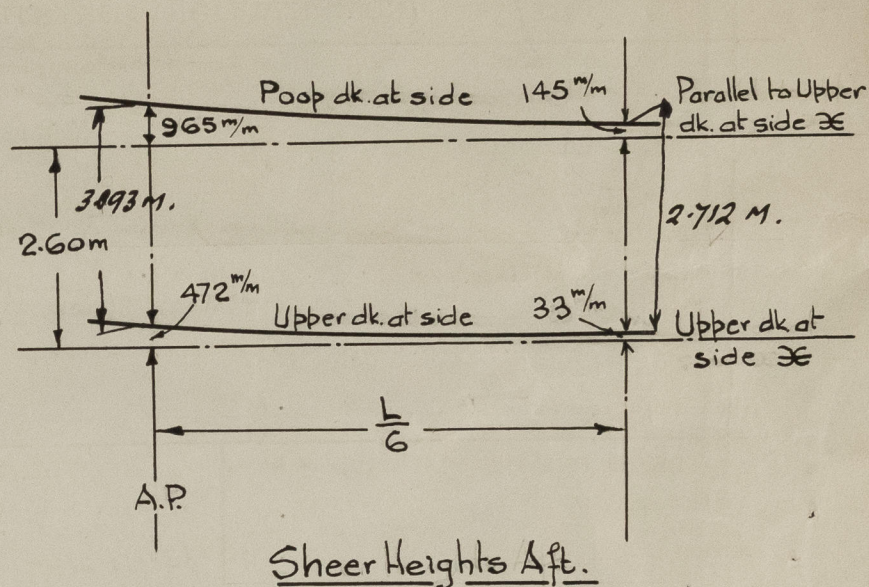 Poop dk. at side
145 m/m
Parallel to Upper
dk. at side
965 m/m
3093 M.
2.60m
2.712 M.
472 m/m
Upper dk. at side
33 m/m
Upper dk at
side
L
6
A.P.
Sheer Heights Aft.